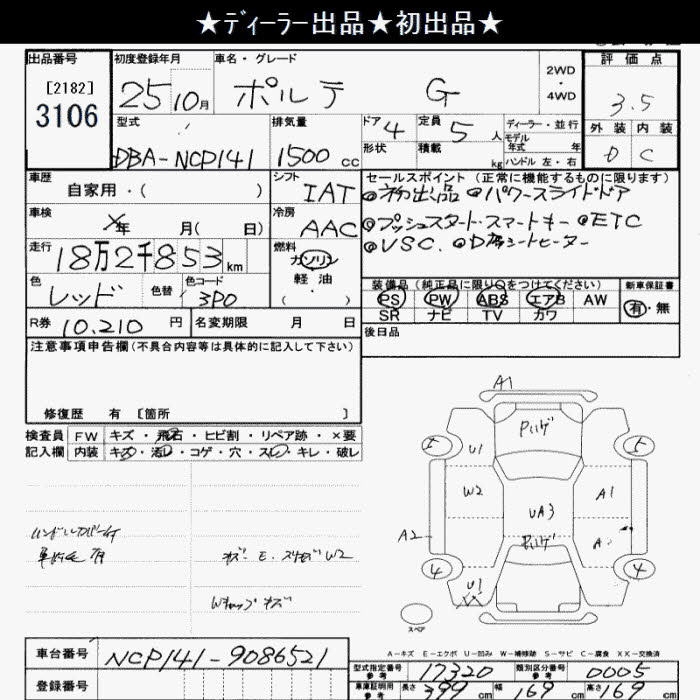 ★ディーラー出品★初出品★
出品番号 [2182] 3106
初度登録年月 25 10月
車名・グレード ポルテ G
2WD・4WD
評価点 3.5
型式 DBA-NCP141
排気量 1500cc
ドア 4
形状
定員 5人
積載 kg
ディーラー・並行
モデル年式 年
ハンドル 左・右
外装 D
内装 C
車歴 自家用・( )
シフト IAT
セールスポイント (正常に機能するものに限ります)
◎初出品 ◎パワースライドドア
◎プッシュスタート・スマートキー ◎ETC
◎VSC. ◎D席シートヒーター
車検 ×年 月( 日)
冷房 AAC
走行 18万2千853km
燃料 ガソリン 軽油 ( ・ )
色 レッド
色替
色コード 3P0
装備品 (純正品に限り○をつけてください)
PS PW ABS エアB AW
SR ナビ TV カワ
新車保証書 有・無
R券 10,210円
名変期限 月 日
後日品
注意事項申告欄(不具合内容等は具体的に記入して下さい)
修復歴 有 [箇所 ]
検査員 FW キズ・飛石・ヒビ割・リペア跡・×要
記入欄 内装 キズ・汚レ・コゲ・穴・スレ・キレ・破レ
A1
U1
W2
A1
UA3
A2
A
U1
4
4
スペア
A-キズ E-エクボ U-凹み W-補修跡 S-サビ C-腐食 XX-交換済
車台番号 NCP141-9086521
登録番号
型式指定番号 参考 17320
類別区分番号 参考 0005
車庫証明用 参考 長さ 399cm 幅 169cm 高さ 169cm